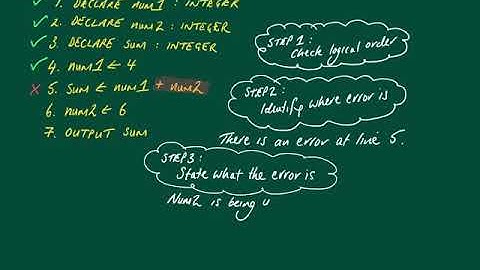 ✓ 1. DECLARE num1 : INTEGER
✓ 2. DECLARE num2 : INTEGER
✓ 3. DECLARE sum : INTEGER
✓ 4. num1 ← 4
✗ 5. sum ← num1 + num2
6. num2 ← 6
7. OUTPUT sum
STEP 1:
Check logical order
STEP2:
Identify where error is
There is an error at line 5.
STEP3:
State what the error is
Num2 is being u